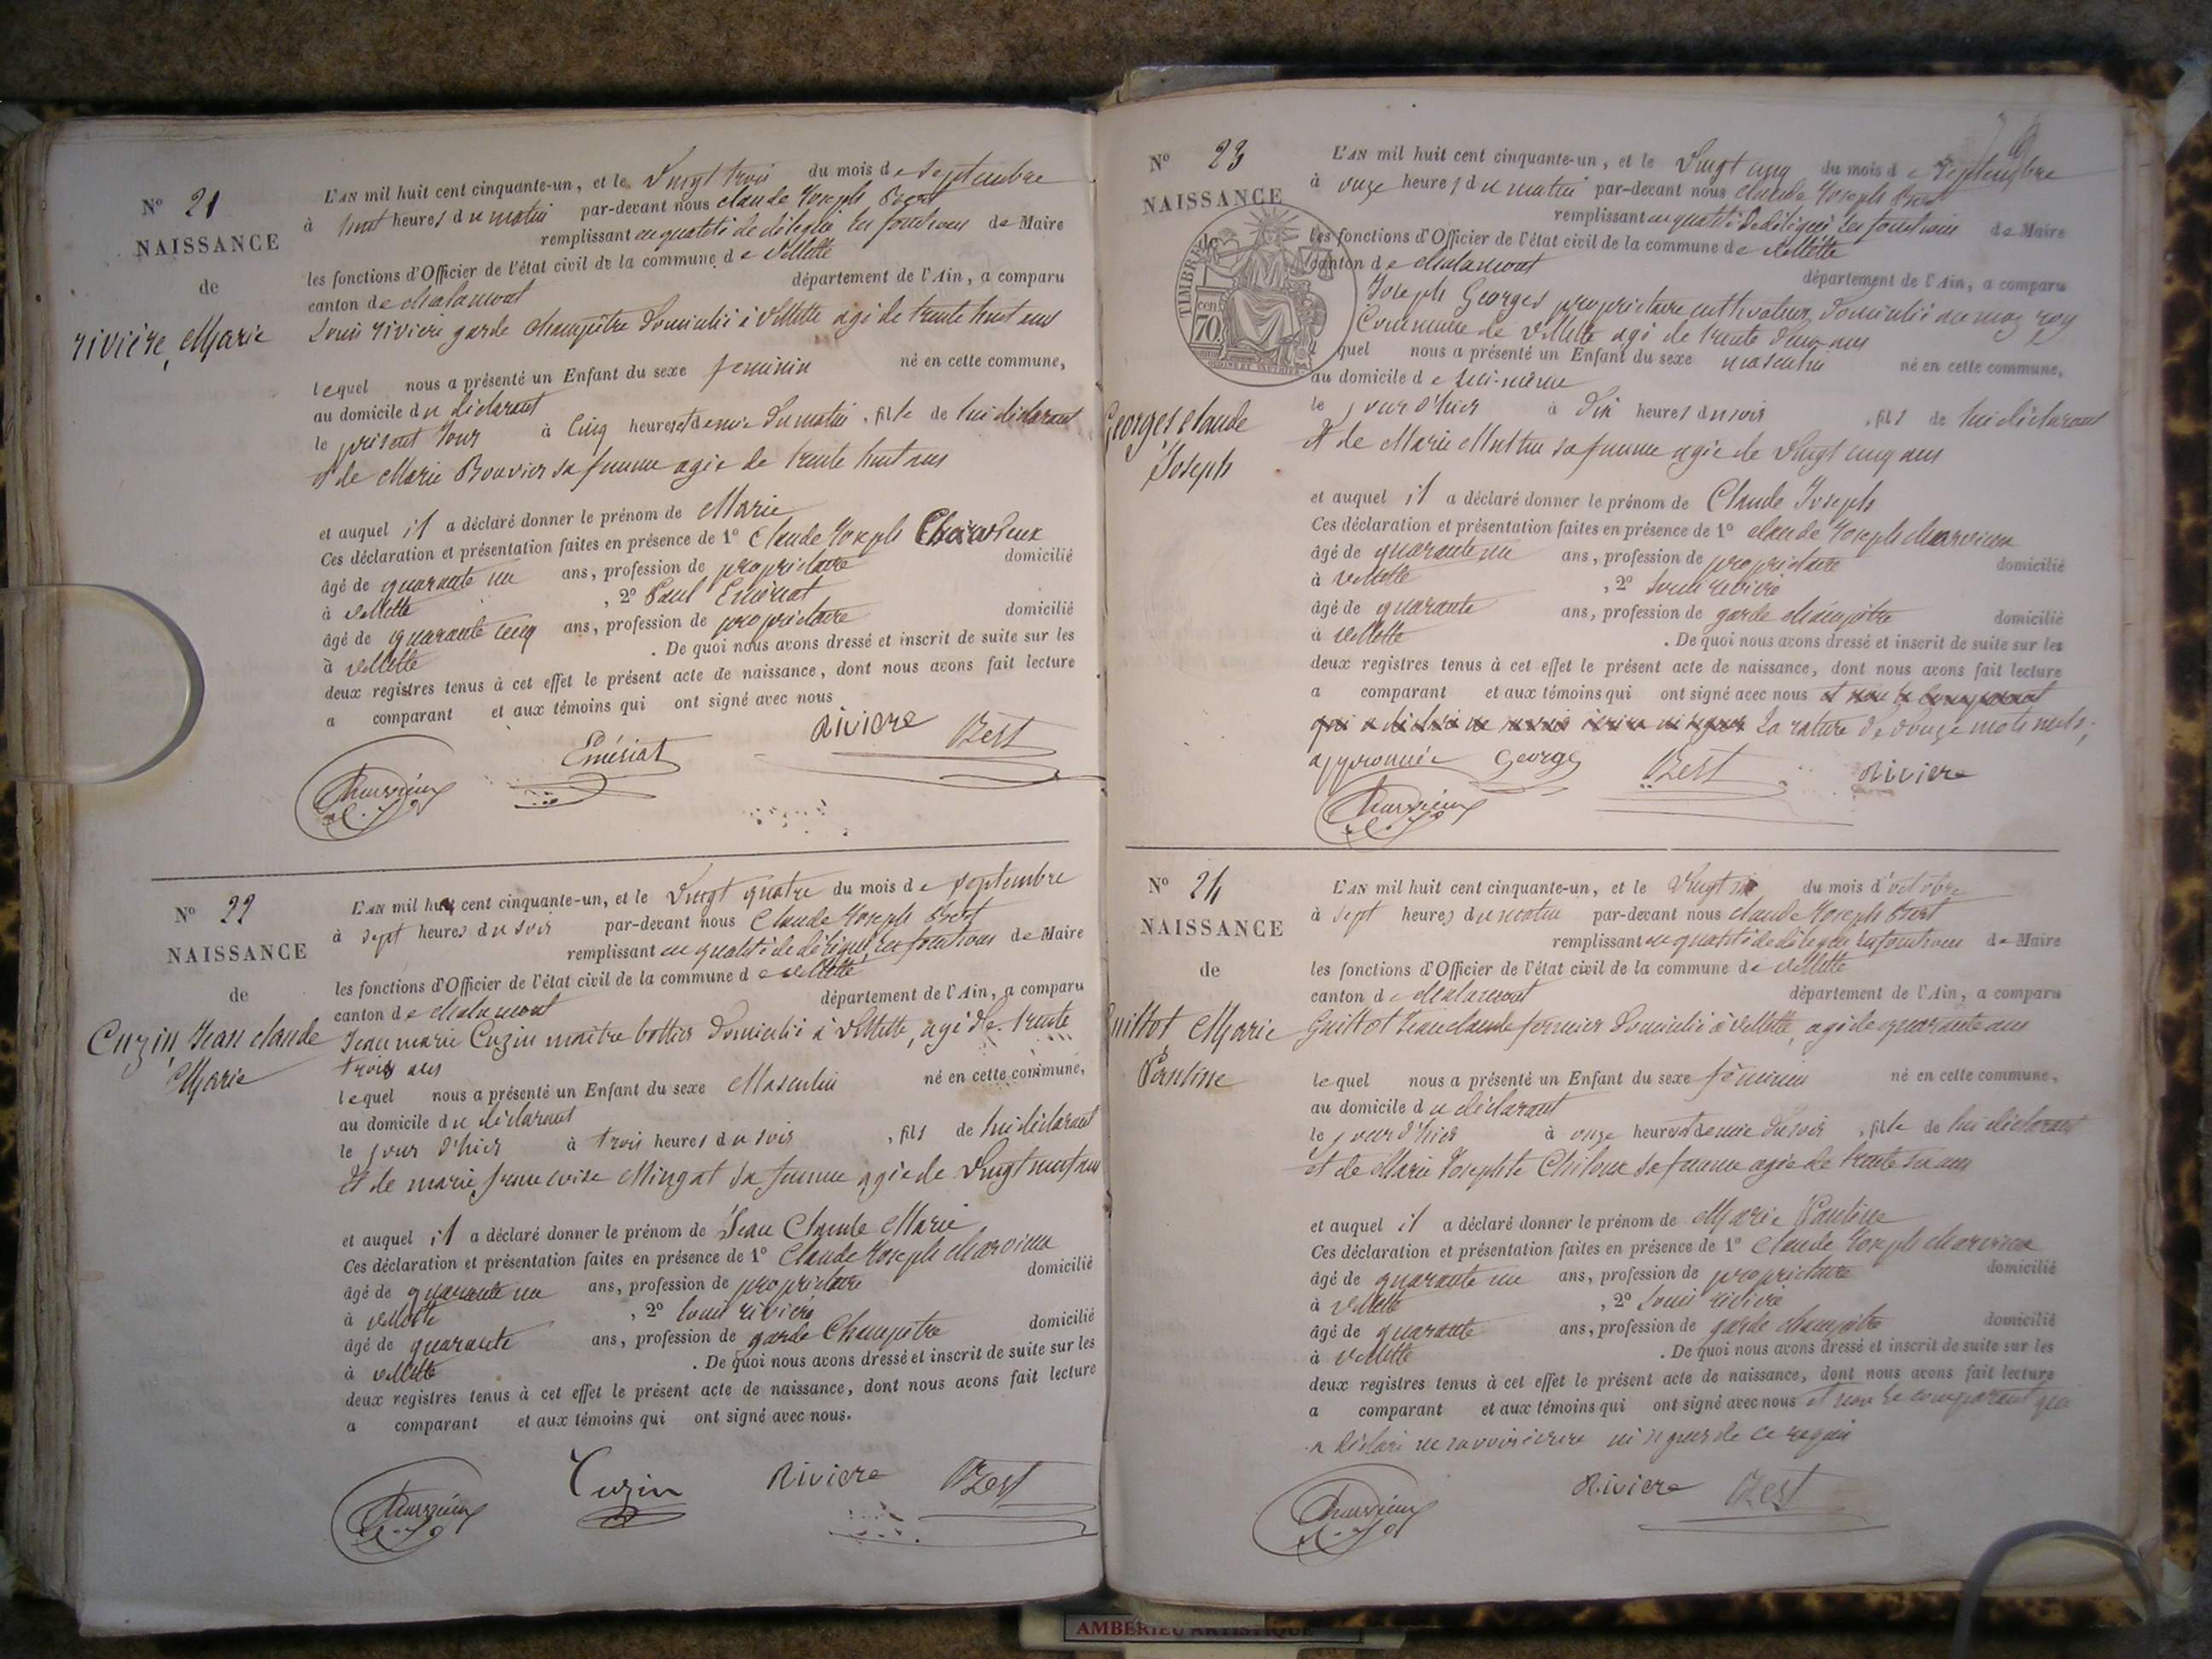 Nº 21
NAISSANCE
de
rivière, Marie
L'AN mil huit cent cinquante-un, et le Vingt trois du mois de septembre
à huit heures du matin par-devant nous claude Joseph Best
remplissant en qualité de délégué les fonctions de Maire
les fonctions d'Officier de l'état civil de la commune de Villette
canton de chalamont département de l'Ain, a comparu
Louis rivière garde champêtre Domicilié à Villette agé de trente huit ans
lequel nous a présenté un Enfant du sexe feminin né en cette commune,
au domicile du déclarant
le présent Jour à Cinq heures et demie du matin, fille de lui déclarant
et de Marie Bouvier sa femme agée de trente huit ans
et auquel il a déclaré donner le prénom de Marie
Ces déclaration et présentation faites en présence de 1º Claude Joseph Charvieux
âgé de quarante un ans, profession de propriétaire domicilié
à Villette, 2º Paul Emériat
âgé de quarante cinq ans, profession de propriétaire domicilié
à Villette. De quoi nous avons dressé et inscrit de suite sur les
deux registres tenus à cet effet le présent acte de naissance, dont nous avons fait lecture
a comparant et aux témoins qui ont signé avec nous
Riviere
Emériat Best
Charvieux
Nº 22
NAISSANCE
de
Cuzin, Jean claude
Marie
L'AN mil huit cent cinquante-un, et le Vingt quatre du mois de septembre
à sept heures du soir par-devant nous Claude Joseph Best
remplissant en qualité de délégué les fonctions de Maire
les fonctions d'Officier de l'état civil de la commune de Villette
canton de chalamont département de l'Ain, a comparu
Jean marie Cuzin maître bottier Domicilié à Villette, agé de trente
trois ans
lequel nous a présenté un Enfant du sexe Masculin né en cette commune,
au domicile du déclarant
le jour d'hier à trois heures du soir, fils de lui déclarant
et de marie francoise Mingat sa femme agée de Vingt neuf ans
et auquel il a déclaré donner le prénom de Jean Claude Marie
Ces déclaration et présentation faites en présence de 1º Claude Joseph charvieux
âgé de quarante un ans, profession de propriétaire domicilié
à Villette, 2º louis rivière
âgé de quarante ans, profession de garde Champetre domicilié
à Villette. De quoi nous avons dressé et inscrit de suite sur les
deux registres tenus à cet effet le présent acte de naissance, dont nous avons fait lecture
a comparant et aux témoins qui ont signé avec nous.
Charvieux Cuzin Riviere Best
Nº 23
NAISSANCE
de
TIMBRE
cen
70
Georges claude
Joseph
L'AN mil huit cent cinquante-un, et le Vingt cinq du mois de septembre
à onze heures du matin par-devant nous claude Joseph Best
remplissant en qualité de délégué les fonctions de Maire
les fonctions d'Officier de l'état civil de la commune de Villette
canton de chalamont département de l'Ain, a comparu
Joseph Georges propriétaire cultivateur, Domicilié au maz roy
Commune de Villette agé de trente deux ans
quel nous a présenté un Enfant du sexe masculin né en cette commune,
au domicile de lui-même
le jour d'hier à dix heures du soir, fils de lui déclarant
et de Marie sa femme agée de Vingt cinq ans
et auquel il a déclaré donner le prénom de Claude Joseph
Ces déclaration et présentation faites en présence de 1º claude Joseph charvieux
âgé de quarante un ans, profession de propriétaire domicilié
à Villette, 2º louis rivière
âgé de quarante ans, profession de garde champêtre domicilié
à Villette. De quoi nous avons dressé et inscrit de suite sur les
deux registres tenus à cet effet le présent acte de naissance, dont nous avons fait lecture
a comparant et aux témoins qui ont signé avec nous et non le comparant
qui a déclaré ne savoir écrire ni signer La rature de douze mots nuls,
approuvée George Best Riviere
Charvieux
Nº 24
NAISSANCE
de
Guillot Marie
Pauline
L'AN mil huit cent cinquante-un, et le Vingt six du mois d'octobre
à sept heures du matin par-devant nous claude Joseph Best
remplissant en qualité de délégué les fonctions de Maire
les fonctions d'Officier de l'état civil de la commune de Villette
canton de chalamont département de l'Ain, a comparu
Guillot Jean claude fermier Domicilié à Villette, agé de quarante ans
lequel nous a présenté un Enfant du sexe féminin né en cette commune,
au domicile du déclarant
le jour d'hier à onze heures et demie du soir, fille de lui déclarant
et de Marie Josephte Chiloux sa femme agée de trente six ans
et auquel il a déclaré donner le prénom de Marie Pauline
Ces déclaration et présentation faites en présence de 1º Claude Joseph charvieux
âgé de quarante un ans, profession de propriétaire domicilié
à Villette, 2º louis rivière
âgé de quarante ans, profession de garde champêtre domicilié
à Villette. De quoi nous avons dressé et inscrit de suite sur les
deux registres tenus à cet effet le présent acte de naissance, dont nous avons fait lecture
a comparant et aux témoins qui ont signé avec nous et non le comparant qui
a déclaré ne savoir écrire ni signer de ce requis
Charvieux Riviere Best
AMBERIEU ARTISTIQUE